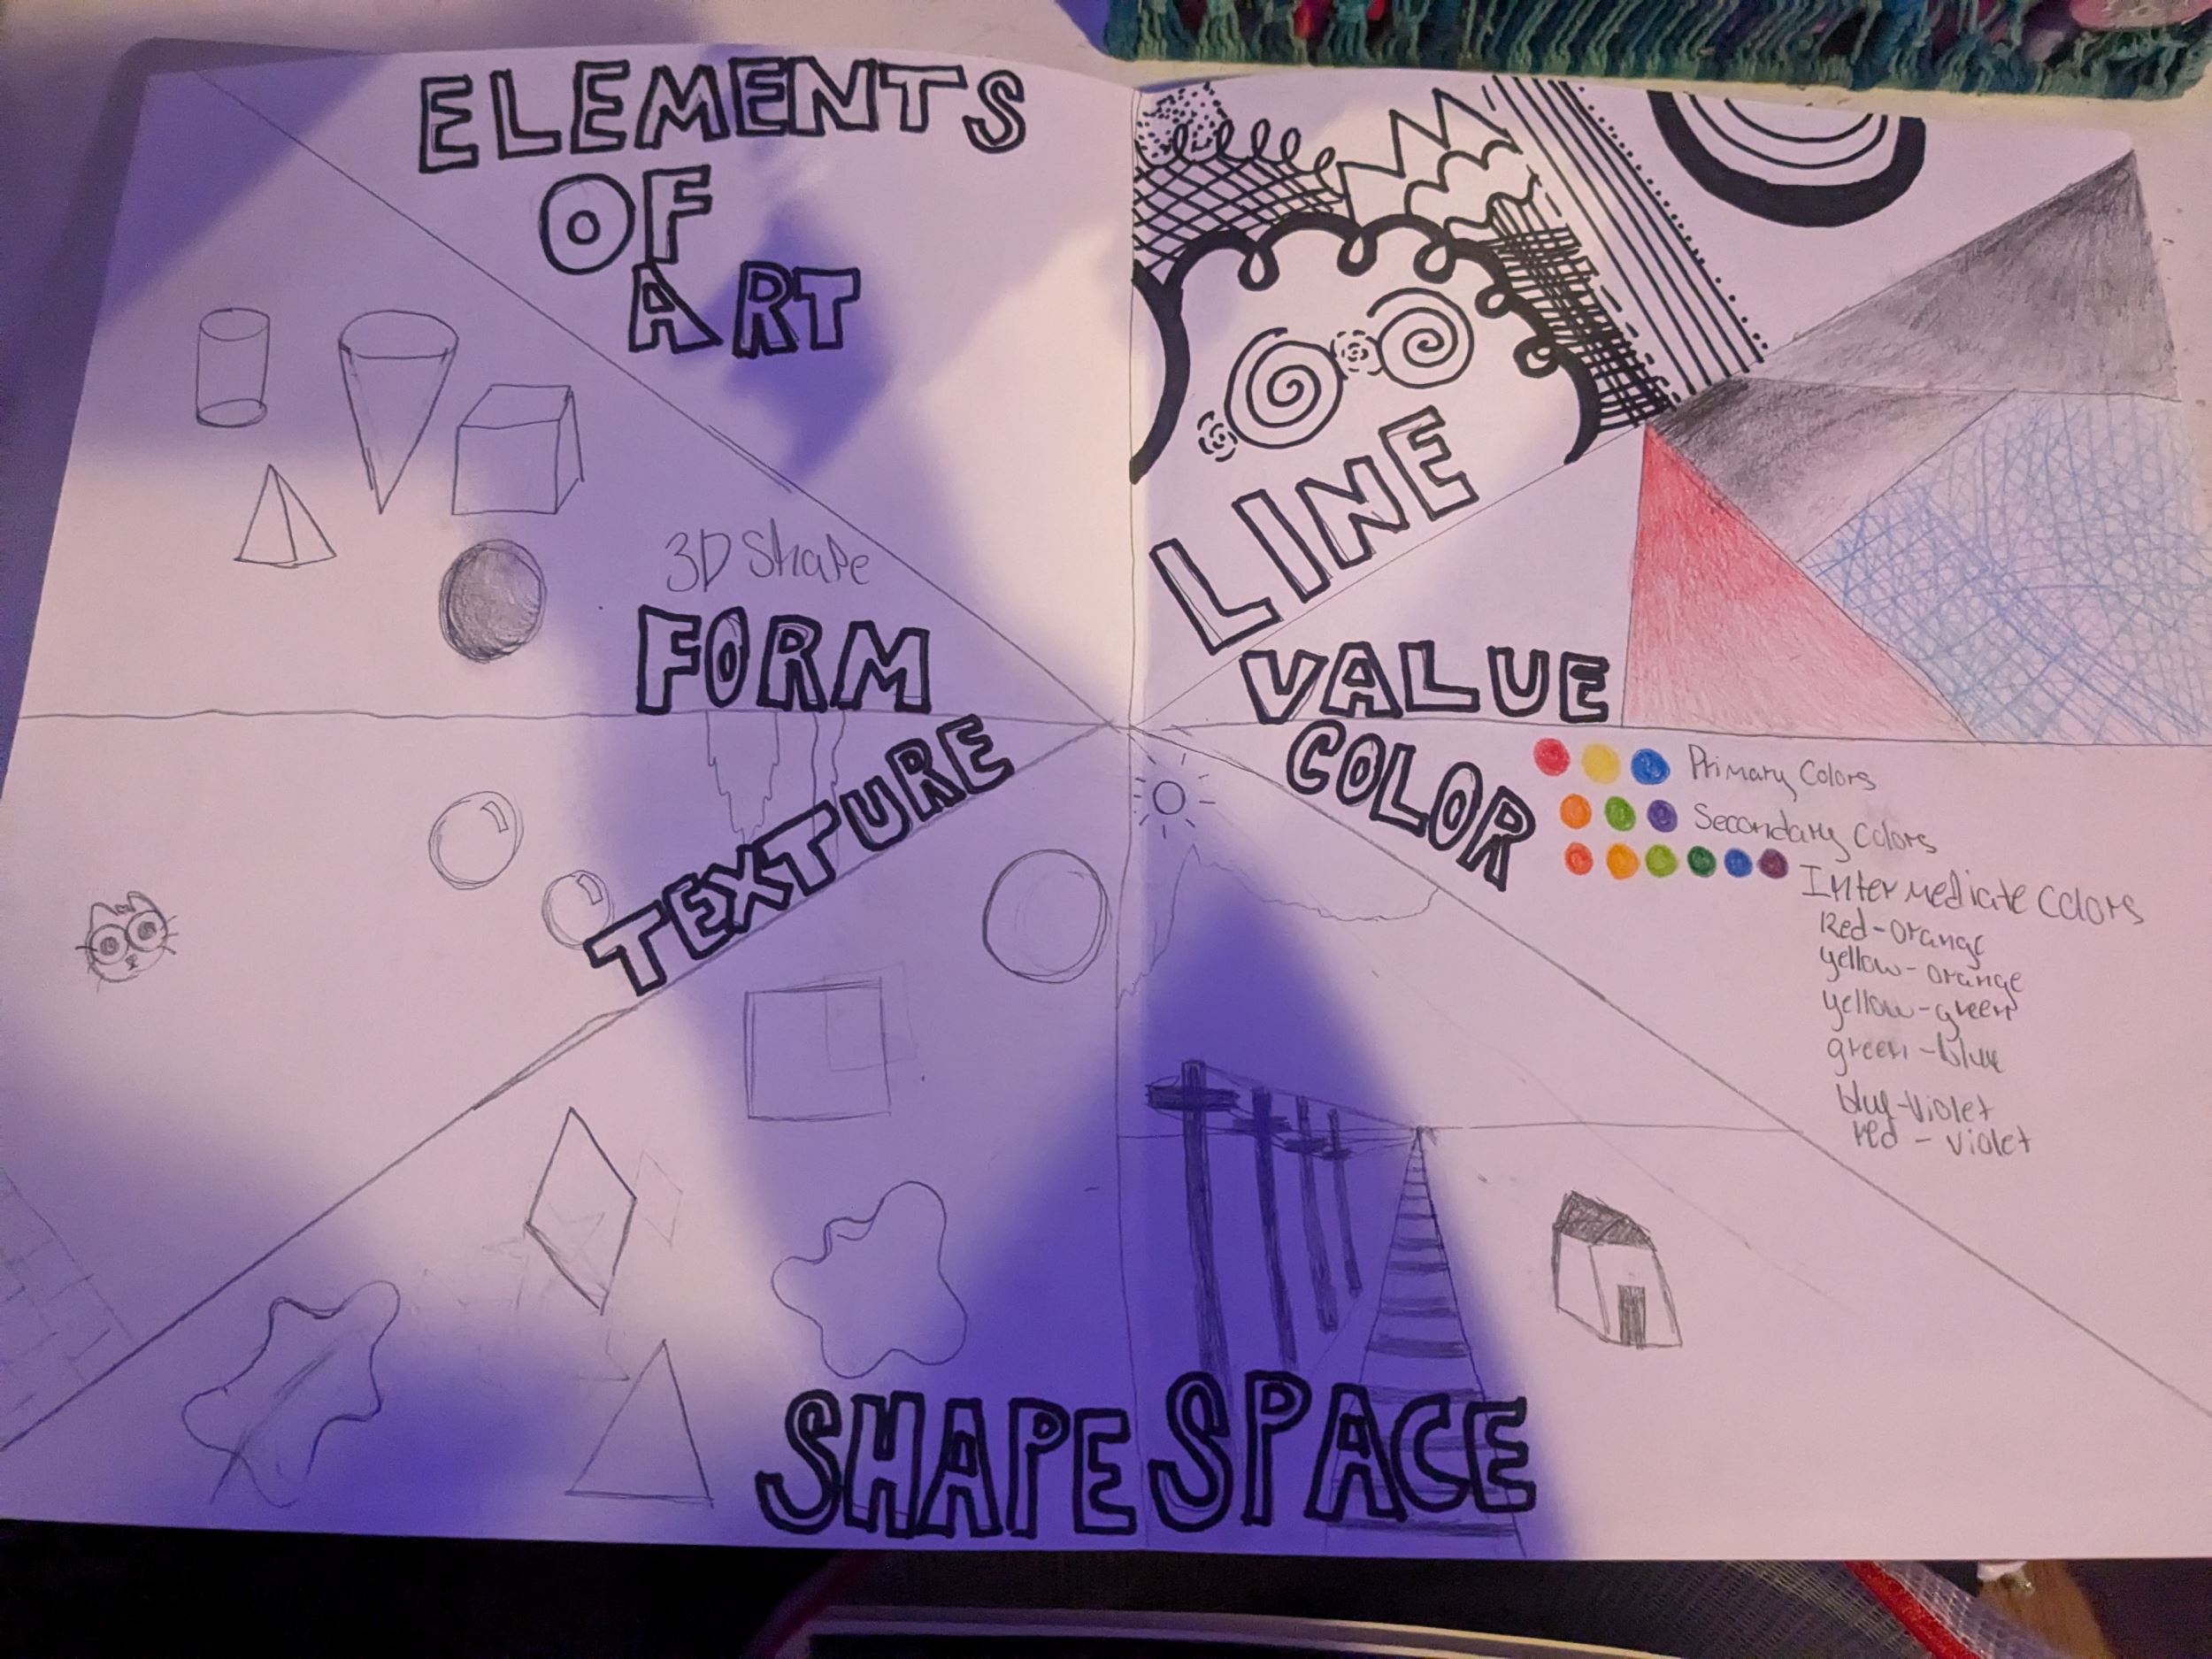 ELEMENTS
OF
ART
LINE
3D Shape
FORM
VALUE
TEXTURE
COLOR
Primary Colors
Secondary Colors
Intermediate Colors
Red-orange
yellow-orange
yellow-green
green-blue
bluy-violet
red - violet
SHAPE
SPACE